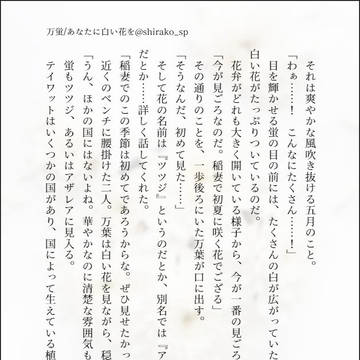 万蛍/あなたに白い花を@shirako_sp
それは爽やかな風吹き抜ける五月のこと。
「わぁ……！　こんなにたくさん……！」
目を輝かせる蛍の目の前には、たくさんの白が広がっていた
白い花がたっぷりついているのだ。
花弁がどれも大きく開いている様子から、今が一番の見ごろ
「今が見ごろなのだ。稲妻で初夏に咲く花でござる」
その通りのことを、一歩後ろにいた万葉が口に出す。
「そうなんだ、初めて見た……」
そして花の名前は『ツツジ』というのだとか、別名では『ア
だとか……詳しく話してくれた。
「稲妻でのこの季節は初めてであろうからな。ぜひ見せたかっ
近くのベンチに腰掛けた二人。万葉は白い花を見ながら、穏
「うん、ほかの国にはないよね。華やかなのに清楚な雰囲気も
蛍もツツジ、あるいはアザレアに見入る。
テイワットはいくつかの国があり、国によって生えている植